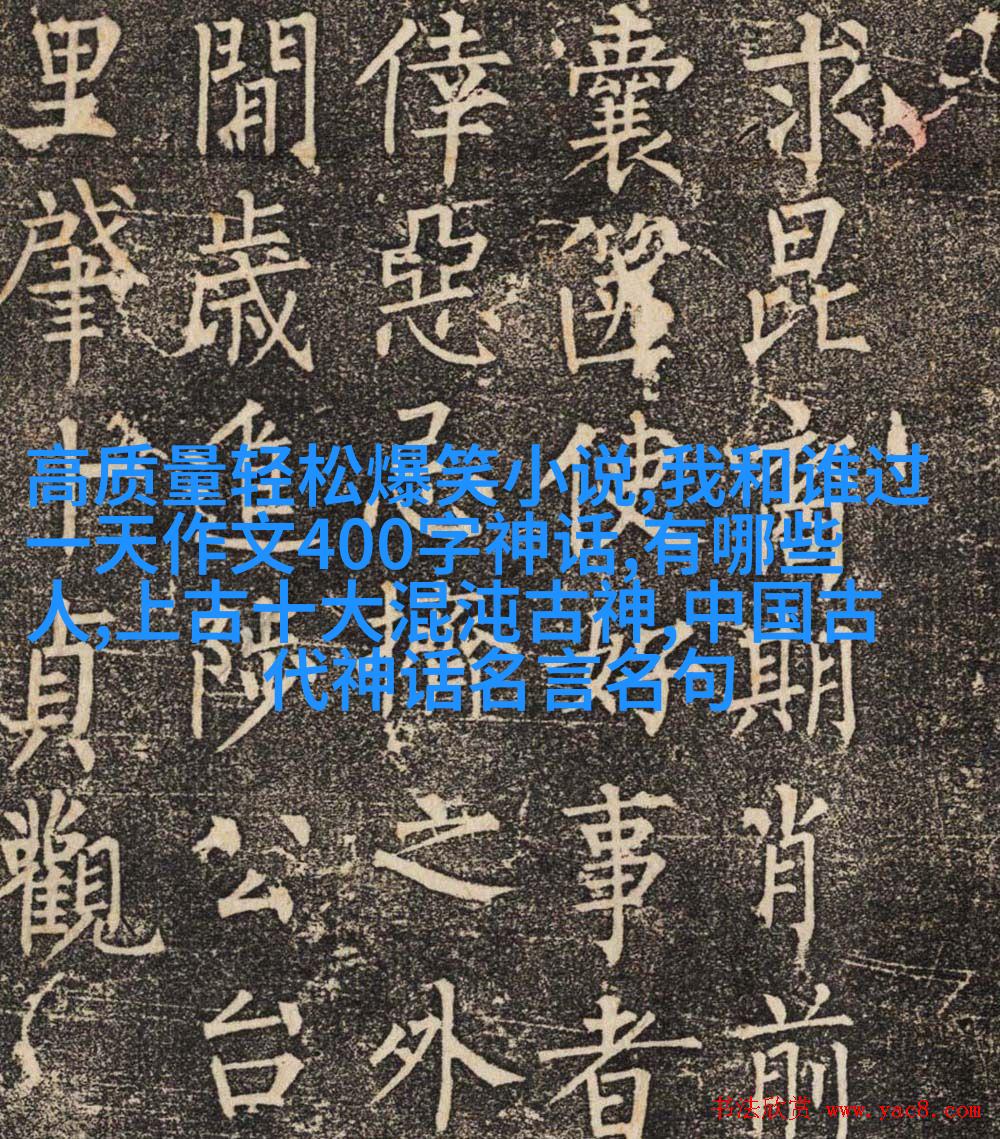 高质量轻松爆笑小说,我和谁过
一天作文400字神话,有哪些
人,上古十大混沌古神,中国古
代神话名言名句
求昆期肖前
囊篋使好事者
倖惡忌之外
閒歲進公台
里肈十貞觀
书法欣赏 www.yac8.com